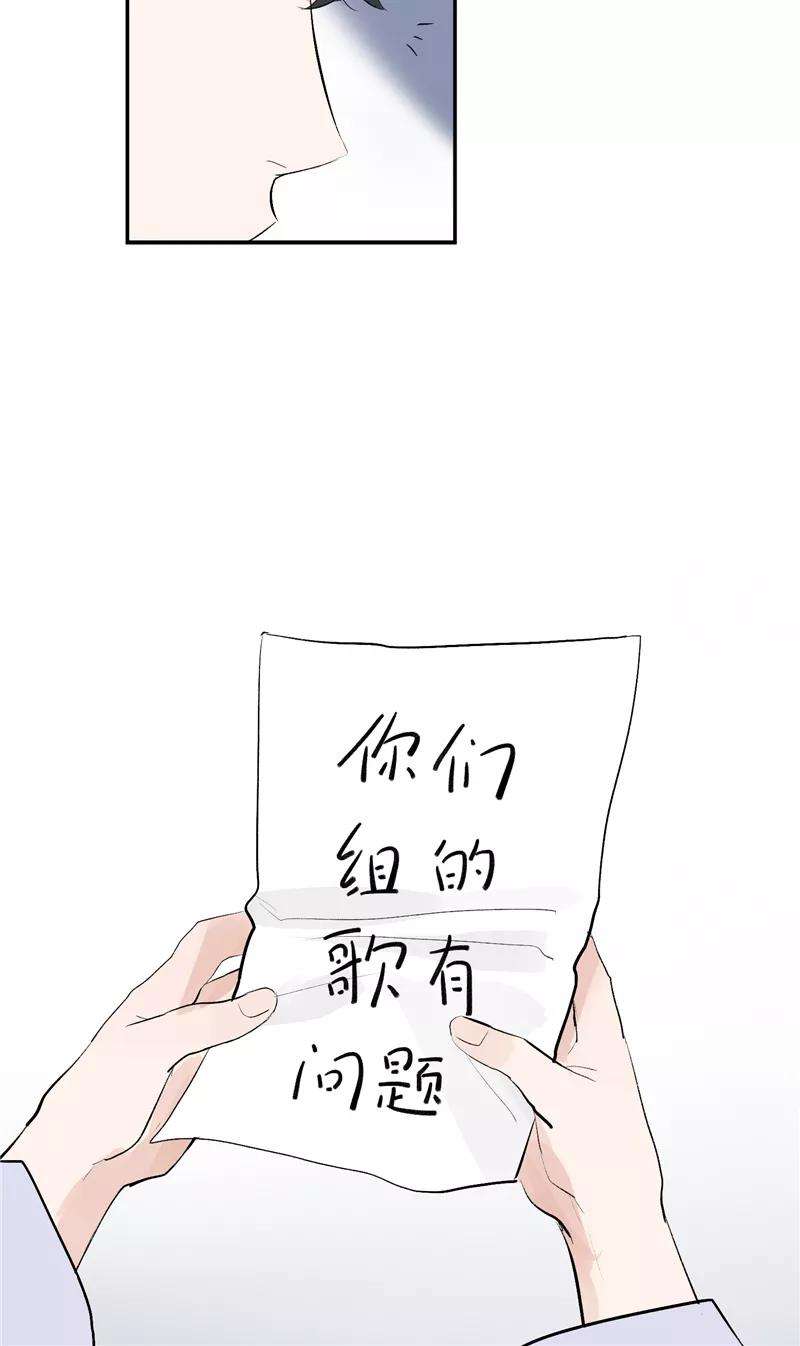 你们
组的
歌有
问题